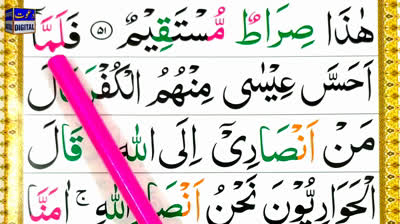 هٰذَا صِرَاطٌ مُّسْتَقِيْمٌ ۝۵۱ فَلَمَّاۤ
اَحَسَّ عِيْسٰى مِنْهُمُ الْكُفْرَ قَالَ
مَنْ اَنْصَارِىْۤ اِلَى اللّٰهِ قَالَ
الْحَوَارِيُّوْنَ نَحْنُ اَنْصَارُ اللّٰهِ ۚ اٰمَنَّا
DIGITAL